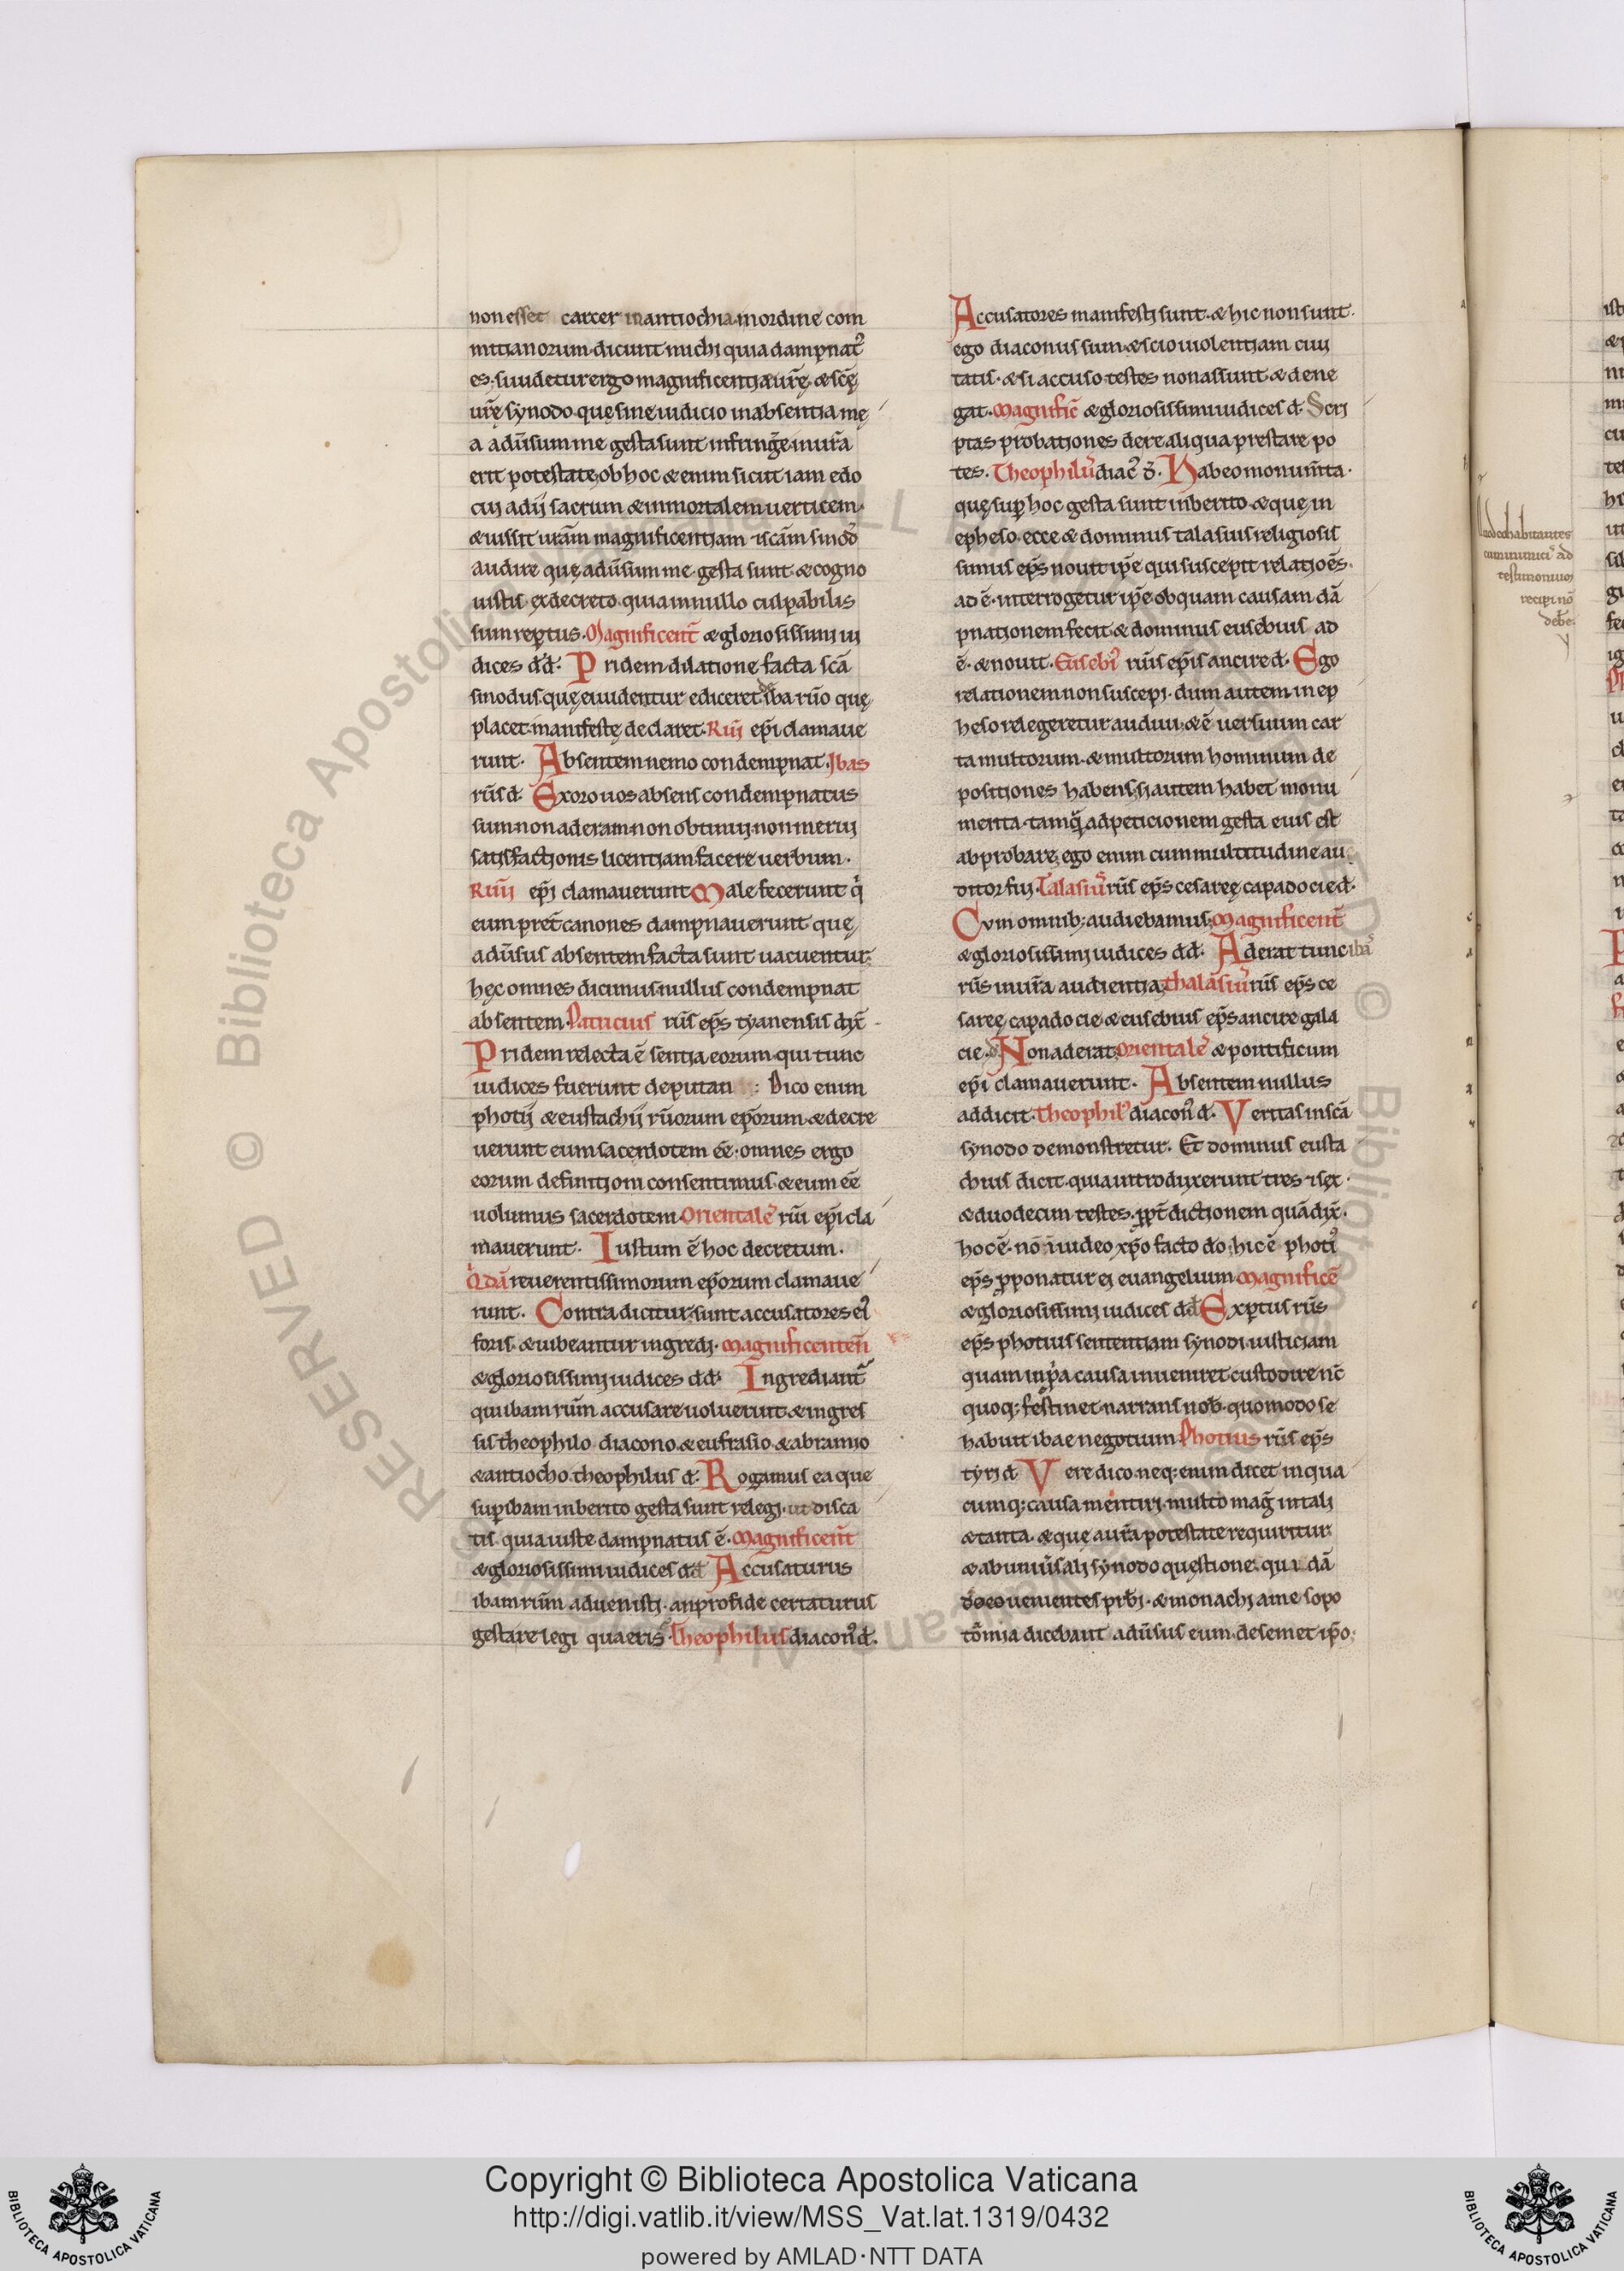 non esset carcer in antiochia. in ordine com
mitianorum. dicunt michi quia dampnat᾽
es. suudetur ergo magnificentiæ ur̄ę. & scę̄
ur̄ę synodo. quę sine iudicio in absentia mę
a adūsum me gesta sunt infring̃e in ur̄a
erit potestate, ob hoc & enim sicut iam edo
cui adij sacrum & inmortalem uerticem.
& iussit urām magnificentiam ⁊ scām sinod᾽
audire quę adūsum me gesta sunt. & cogno
uistis ex decreto. quia in nullo culpabilis
sum rep̱tus. Magnificent̄ & gloriosissimi iu
dices dd̄. Pridem dilatione facta scā
sinodus. quę euidentur ediceret de iba rūo quę
placet. manifestę declaret. Rūi ep̄i clamaue
runt. Absentem nemo condempnat. Ibas
rūs d̄. Exoro uos absens condempnatus
sum. non aderam. non obtinui. non merui
satisfactionis licentiam facere uerbum.
Rūi ep̄i clamauerunt Male fecerunt q̇
eum pret̄ canones dampnauerunt quę
adūsus absentem facta sunt uacuentur.
hęc omnes dicimus. nullus condempnat
absentem. Patricius rūs ep̄s tyanensis dix̄
Pridem relecta ē sentia eorum. qui tunc
iudices fuerunt deputati : Dico enim
photij & eustachij rūorum ep̄orum. & decre
uerunt eum sacerdotem eē. omnes ergo
eorum definitioni consentimus. & eum eē
uolumus sacerdotem. Orientale᾽ rūi ep̄i cla
mauerunt. Iustum ē hoc decretum.
Q̇dā reuerentissimorum ep̄orum clamaue
runt. Contradicitur. sunt accusatores ei᾽
foris. & iubeantur ingredi. Magnificenten̄
& gloriosissimi iudices dd̄ Ingrediant᷑
qui ibam rūm accusare uoluerunt. & ingres
sis theophilo diacono. & eufrasio. & abramio
& antiocho. theophilus d̄. Rogamus ea que
sup̱ ibam in berito gesta sunt relegi. ut disca
tis. quia iuste dampnatus ē. Magnificent̄
& gloriosissimi iudices dd̄ Accusaturus
ibam rūm aduenisti. an pro fide certaturus
gesta relegi quaeris. Theophilus diacon᾽ d̄.
Accusatores manifesti sunt. & hic non sunt.
ego diaconus sum. & scio uiolentiam ciui
tatis. & si accuso. testes non assunt. & dene
gat. Magnific̄ & gloriosissimi iudices d̄. Scri
ptas probationes de re aliqua prestare po
tes. Theophilus᾽ diac᾽ d̄. Habeo monum̄ta.
quę sup̱ hoc gesta sunt in berito. & quę in
epheso. ecce & dominus talasius religiosis
simus ep̄s nouit ip̄e qui suscepit relatioēs.
adē. interrogetur ip̄e ob quam causam dā
pnationem fecit. & dominus eusebius ad
ē. & nouit. Eusebi᾽ rūis ep̄is ancire d̄. Ego
relationem non suscepi. dum autem in ep
heso relegeretur audiui. & ē uersuum car
ta multorum. & multorum hominum de
positiones habens, si autem habet monu
menta. tamq̄. ad peticionem gesta eius est
abprobare, ego enim cum multitudine au
ditor fui. Talasiu᾽ rūs ep̄s cesareę capadocie d̄.
Cum omnib; audiebamus. Magnificent̄
& gloriosissimi iudices dd̄. Aderat tunc iba᾽
rūs in ur̄a audientia. thalasiu᾽ rūs ep̄s ce
sareę capadocie. & eusebius ep̄s ancire gala
cie. d̄. Non aderat. Orientale᾽ & pontificum
ep̄i clamauerunt. Absentem nullus
addicit. Theophil᾽ diacon᾽ d̄. Veritas in scā
synodo demonstretur. Et dominus eusta
chius dicit. quia introduxerunt tres ⁊ sex.
& duodecim testes. pp̱t̄ dictionem quā dix̄.
hoc ē. nō īuideo xp̄o facto do; hic ē photi᾽
ep̄s p̱ponatur ei euangelium. Magnificē
& gloriosissimi iudices dd̄ Exp̱tus rūs
ep̄s photius sententiam synodi iusticiam
quam in p̱a causa inueniret custodire nc̄
quoq; festinet narrans nob̄. quomodo se
habuit ibae negotium. Photius rūs ep̄s
tyri d̄ Vere dico. neq; enim dicet in qua
cumq; causa mentiri. multo mag̃ in tali
& tanta. & que a ur̄a potestate requiritur.
& ab uniūsali synodo quęstione. qui dā
de eo uenientes prb̄i. & monachi a mesopo
tōmia dicebant adūsus eum. de semet ip̄o.
cohabitantes
ad
testimonium
recipi nō
debēt